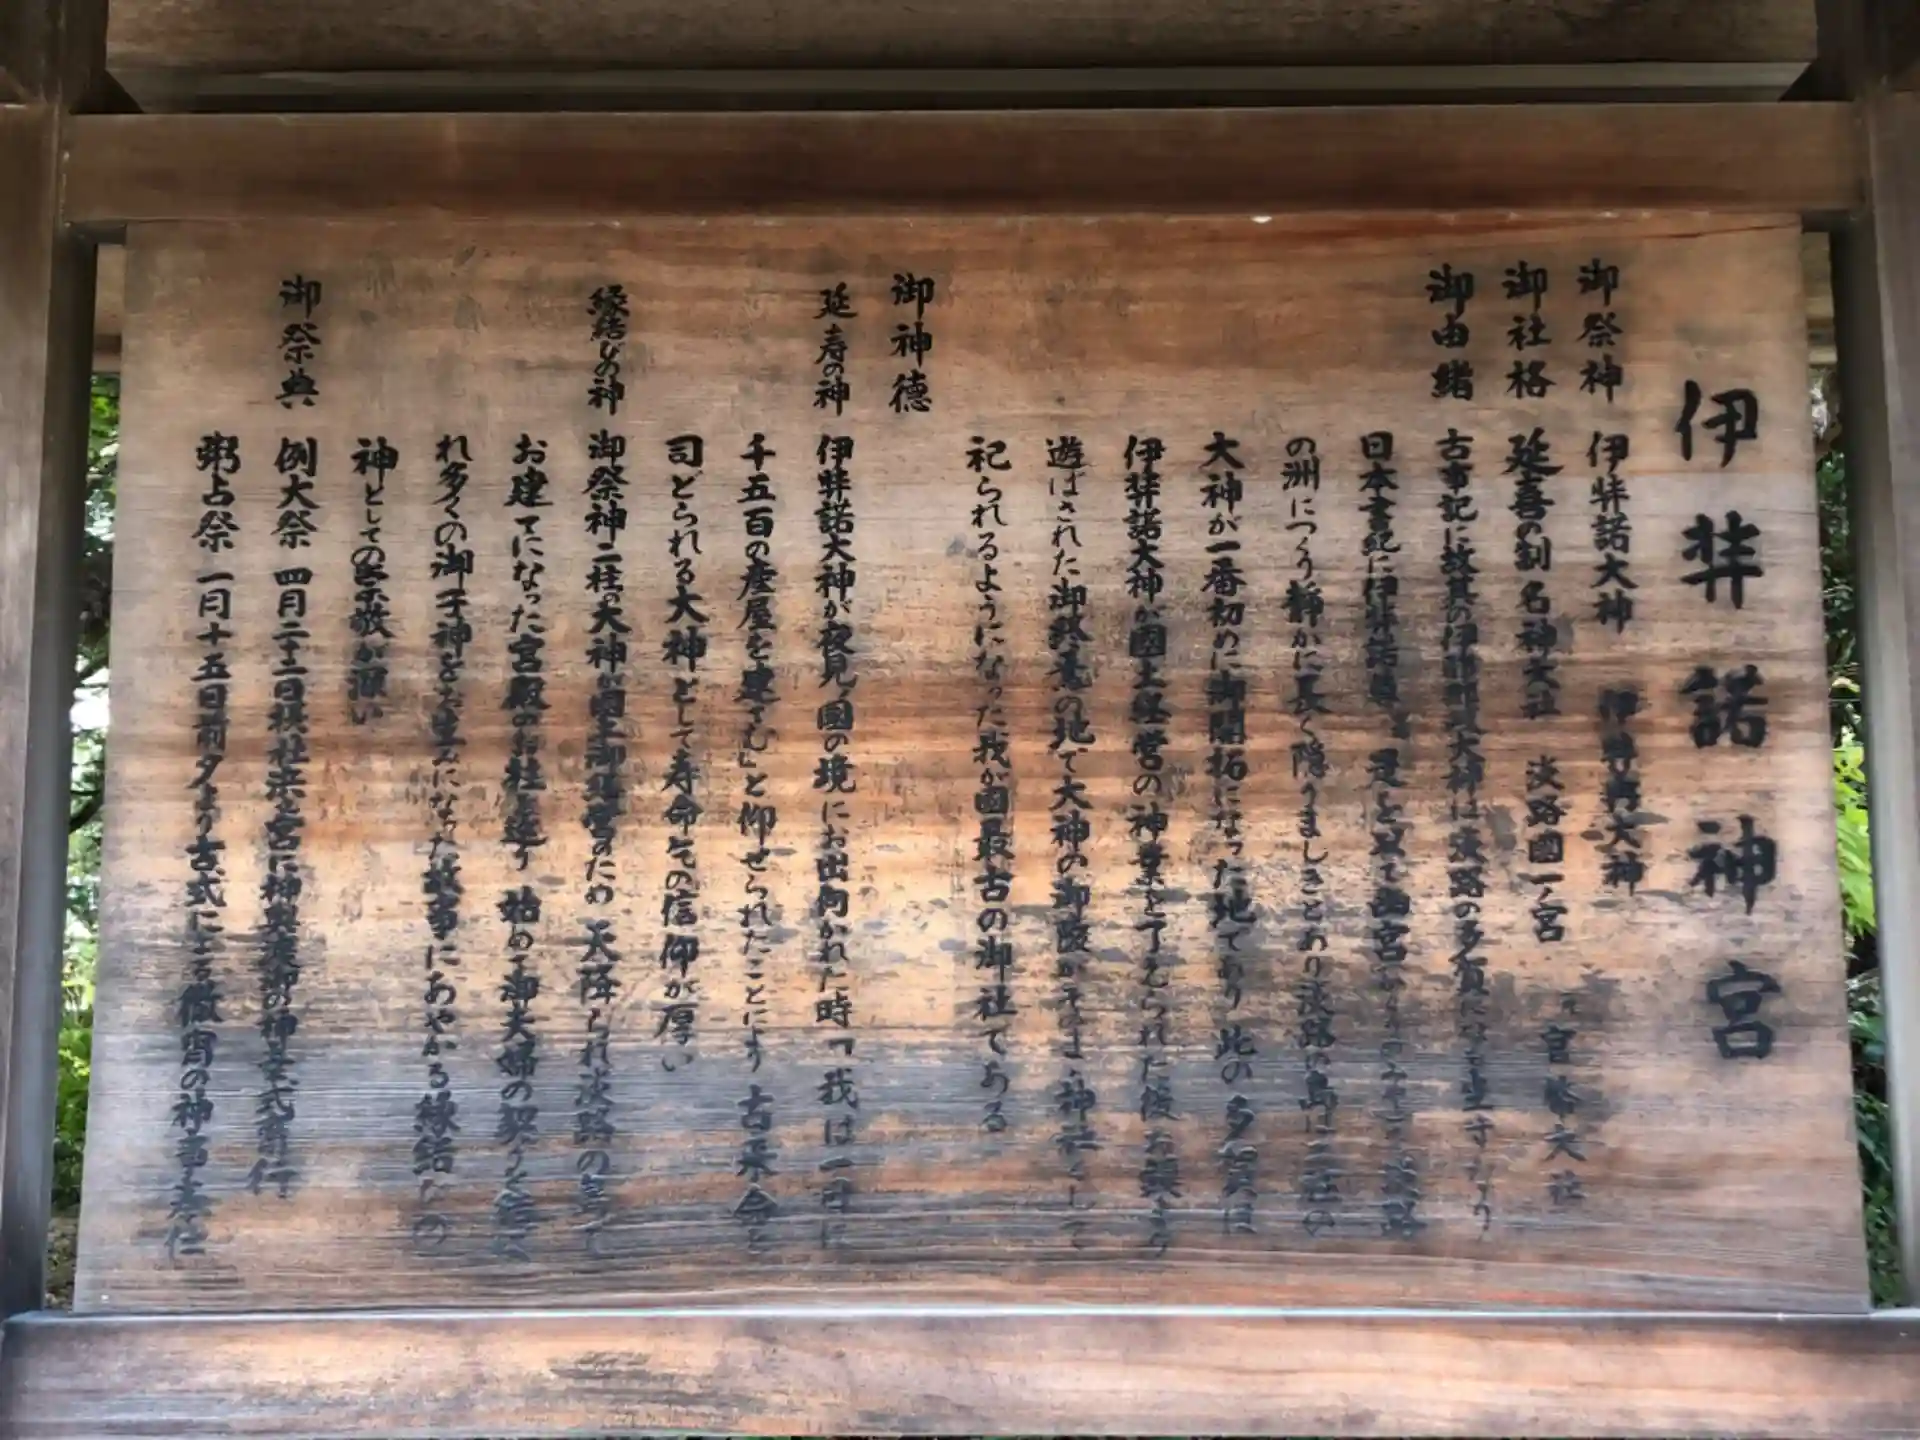 伊弉諾神宮
御祭神 伊弉諾大神 伊弉冉大神
御社格 延喜の制 名神大社 淡路國一ノ宮 元 官幣大社
御由緒 古事記に故其の伊耶那岐大神は淡路の多賀になも坐すなり
日本書紀に伊弉諾尊 是を以て幽宮 淡路
の洲につくり静かに長く隠りましきとあり淡路の島は二柱の
大神が一番初めに御開拓になった地であり 此の 多賀は
伊弉諾大神が國土経営の神業を了えられた後お鎮まり
遊ばされた御終焉の地で大神の御陵がそのまま神社として
祀られるようになった我が國最古の御社である
御神徳
延寿の神 伊弉諾大神が夜見ノ國の境にお出向かれた時「我は一日に
千五百の産屋を建てむ」と仰せられたことにより 古来命を
司どられる大神として寿命乞の信仰が厚い
縁結びの神 御祭神二柱の大神が國土御経営のため 天降られ淡路の島で
お建てになった宮殿のお柱を巡り 始めて御夫婦の契りを
れ多くの御子神をお生みになった故事にあやかる縁結びの
神としての崇敬が深い
御祭典 例大祭 四月二十二日 浜之宮に神輿渡御の神幸式斎行
粥占祭 一月十五日前夕より古式による徹宵の神事奉仕